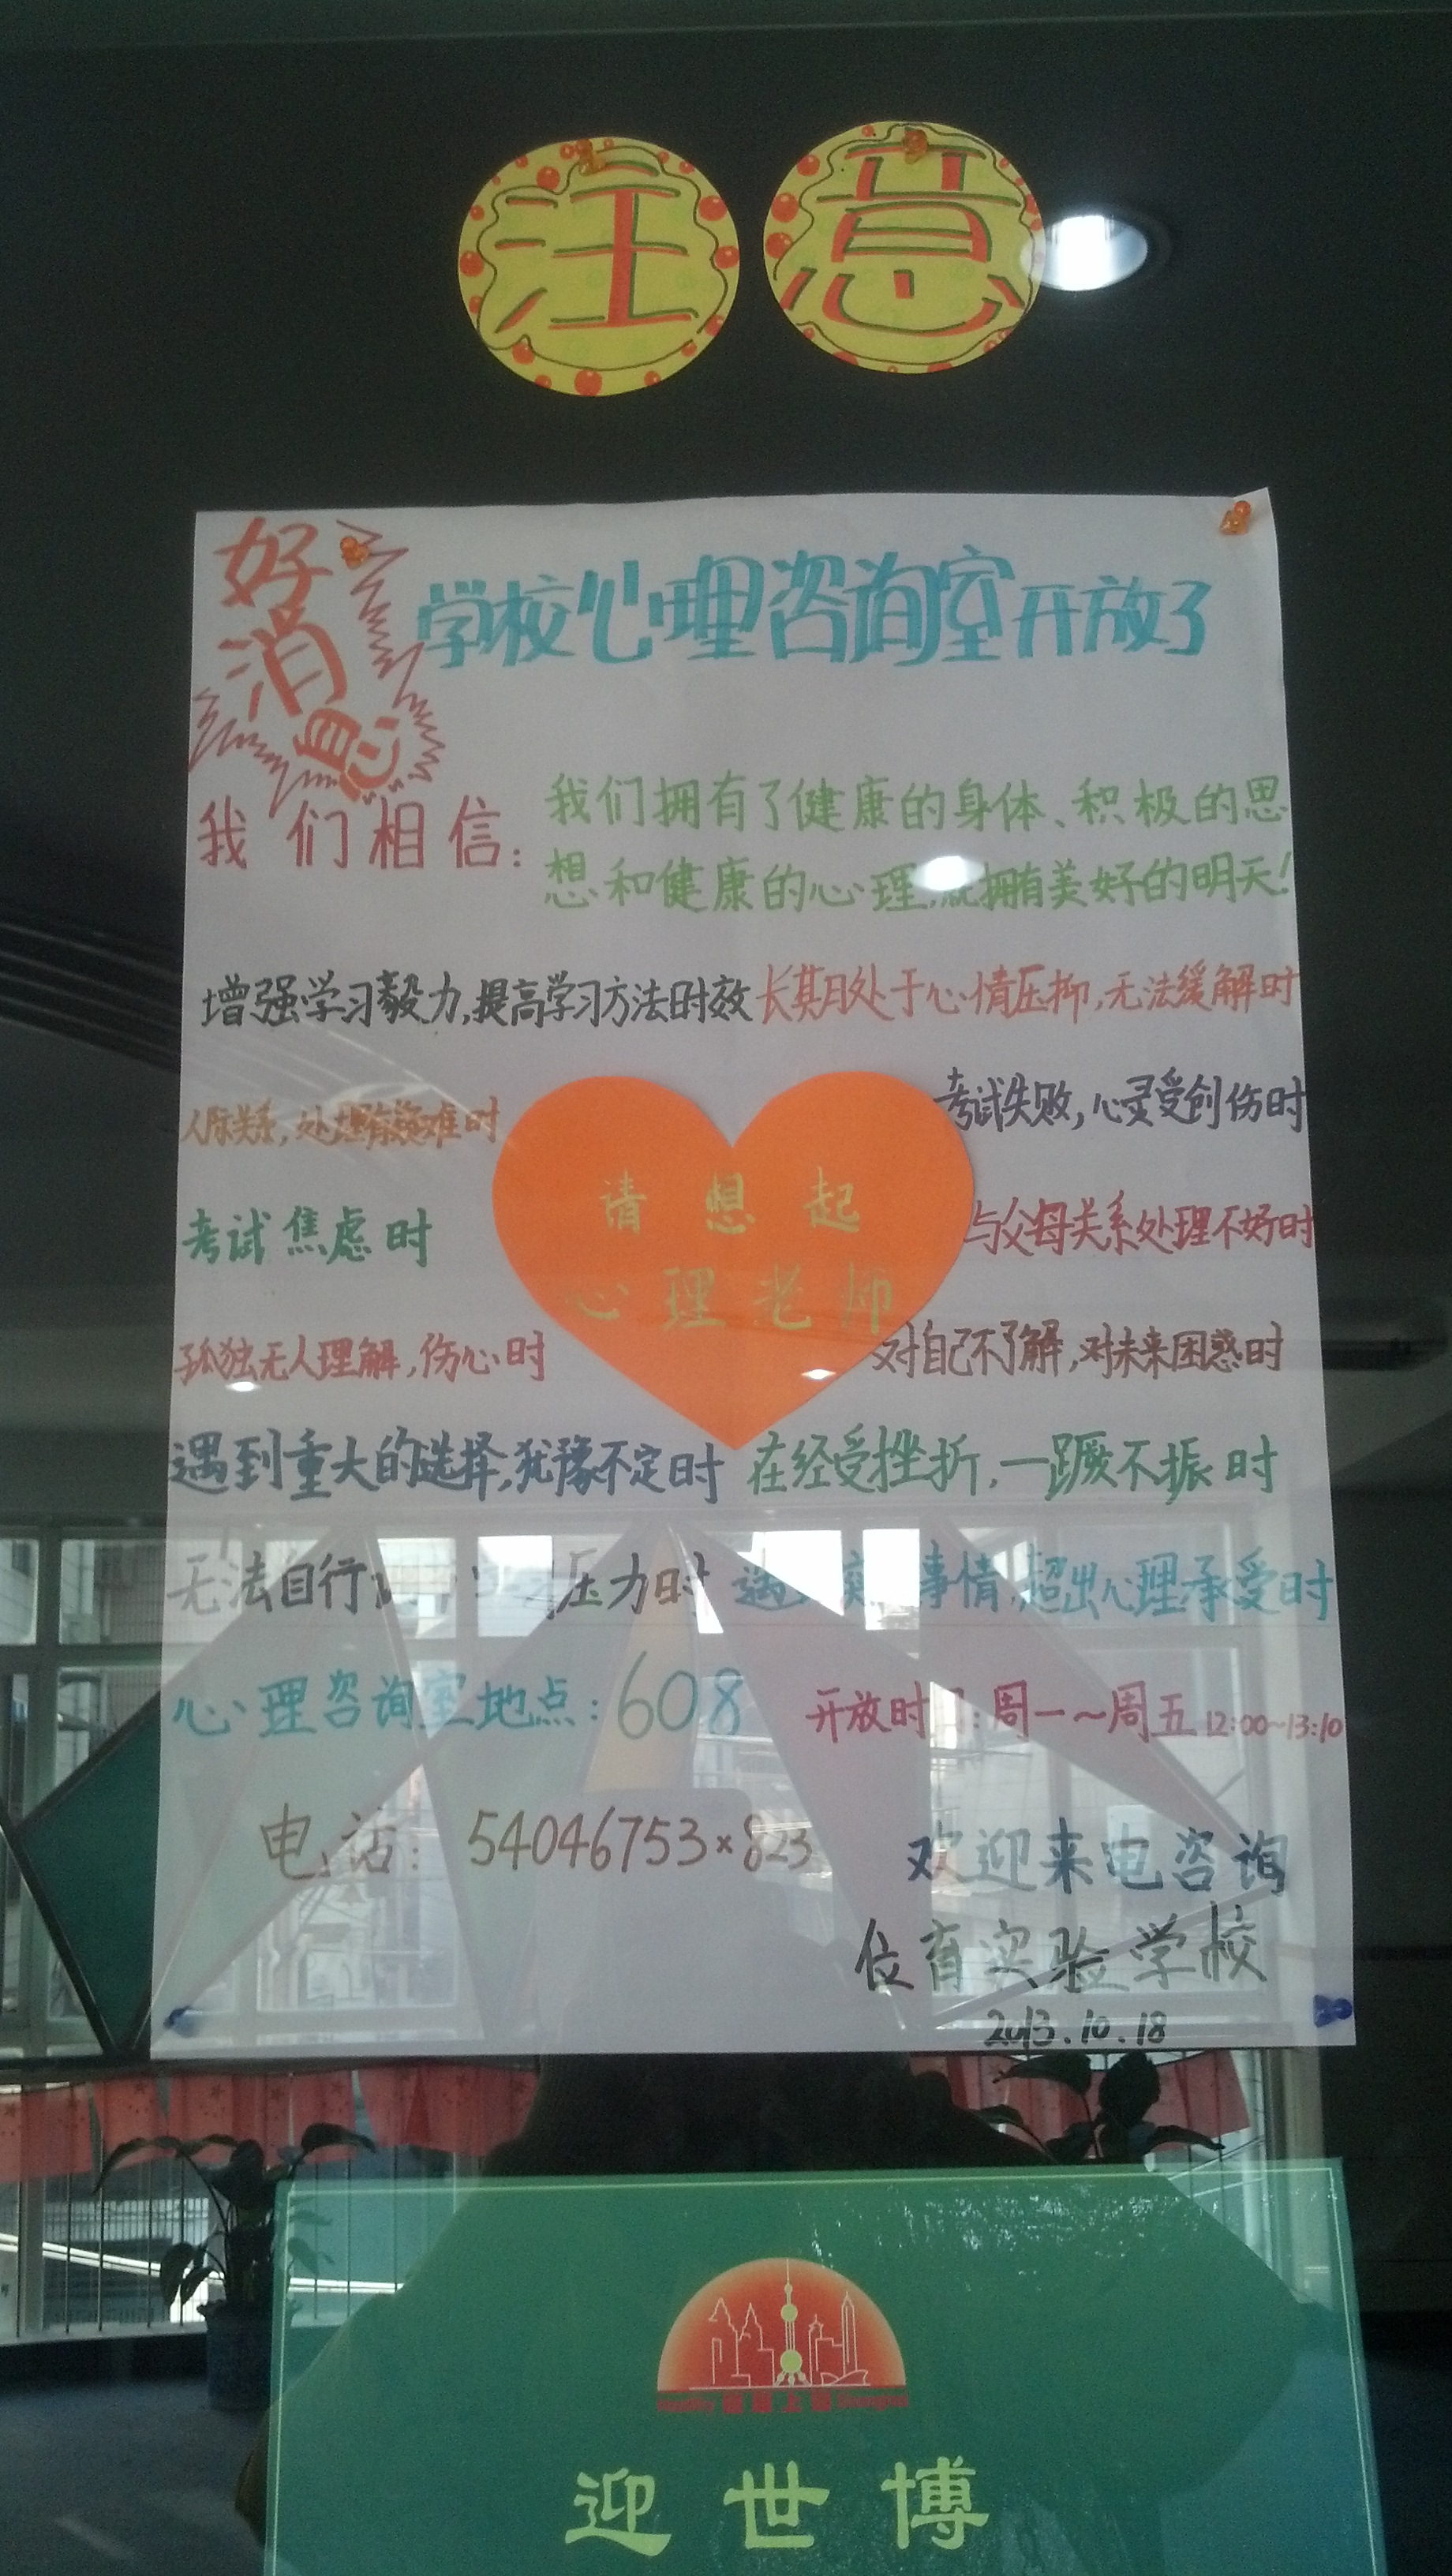 注意
好消息
学校心理咨询室开放了
我们相信:
我们拥有了健康的身体、积极的思
想和健康的心理,就拥有美好的明天!
增强学习毅力,提高学习方法时效
长期处于心情压抑,无法缓解时
人际关系,处理有疑难时
考试失败,心灵受创伤时
请想起
心理老师
考试焦虑时
与父母关系处理不好时
孤独无人理解,伤心时
对自己不了解,对未来困惑时
遇到重大的选择,犹豫不定时
在经受挫折,一蹶不振时
无法自行 压力时
遇 事情,超出心理承受时
心理咨询室地点:608
开放时间:周一~周五12:00~13:10
电话: 54046753×823
欢迎来电咨询
位育实验学校
2013.10.18
迎世博